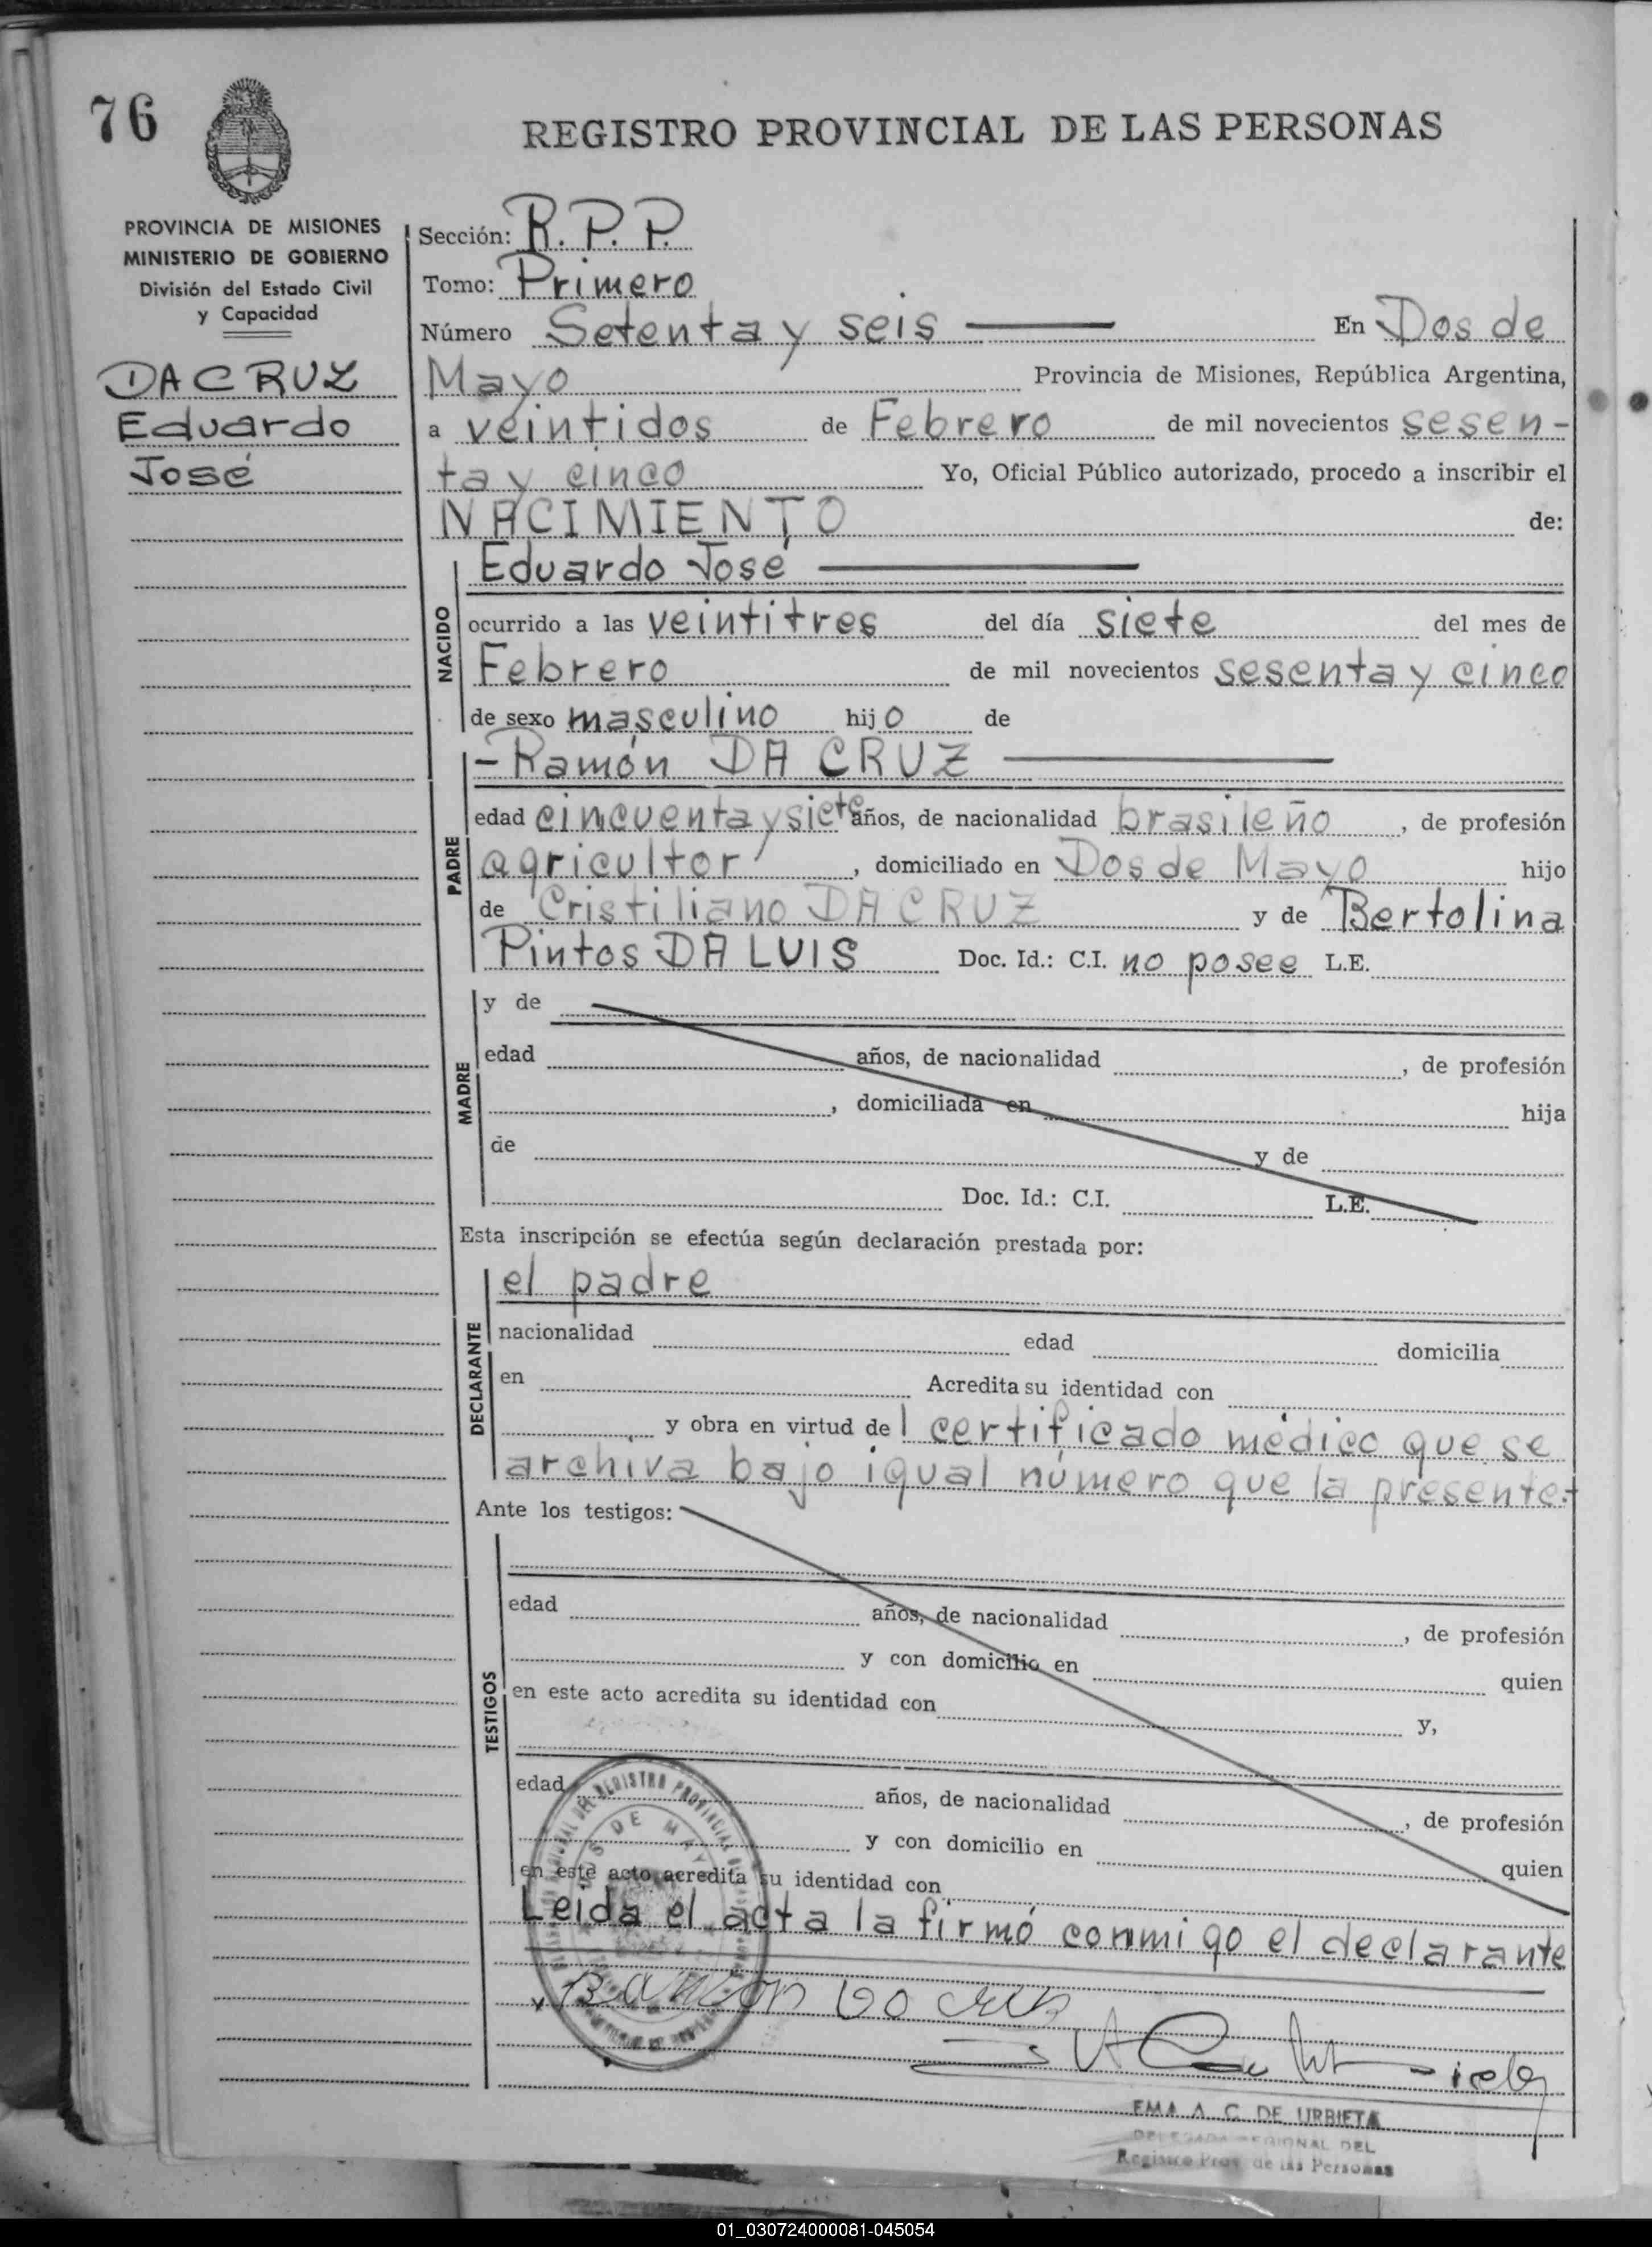 76
REGISTRO PROVINCIAL DE LAS PERSONAS
PROVINCIA DE MISIONES
MINISTERIO DE GOBIERNO
División del Estado Civil
y Capacidad
DA CRUZ
Eduardo
José
Sección: R. P. P.
Tomo: Primero
Número Setenta y seis En Dos de
Mayo Provincia de Misiones, República Argentina,
a veintidos de Febrero de mil novecientos sesen-
ta y cinco Yo, Oficial Público autorizado, procedo a inscribir el
NACIMIENTO de:
NACIDO
Eduardo José
ocurrido a las veintitres del día siete del mes de
Febrero de mil novecientos sesenta y cinco
de sexo masculino hijo de
PADRE
- Ramón DA CRUZ
edad cincuenta y siete años, de nacionalidad brasileño, de profesión
agricultor, domiciliado en Dos de Mayo hijo
de Cristiliano DA CRUZ y de Bertolina
Pintos DA LUIS Doc. Id.: C.I. no posee L.E.
MADRE
y de
edad años, de nacionalidad , de profesión
, domiciliada en hija
de y de
Doc. Id.: C.I. L.E.
Esta inscripción se efectúa según declaración prestada por:
DECLARANTE
el padre
nacionalidad edad domicilia
en Acredita su identidad con
y obra en virtud del certificado médico que se
archiva bajo igual número que la presente.-
Ante los testigos:
TESTIGOS
edad años, de nacionalidad , de profesión
y con domicilio en quien
en este acto acredita su identidad con y,
edad años, de nacionalidad , de profesión
y con domicilio en quien
en este acto acredita su identidad con
REGISTRO PROVINCIAL
DOS DE MAYO
Leida el acta la firmó conmigo el declarante
x Ramon Da Cruz
EMA A. C. DE URBIETA
DELEGADA REGIONAL DEL
Registro Prov. de las Personas
01_030724000081-045054